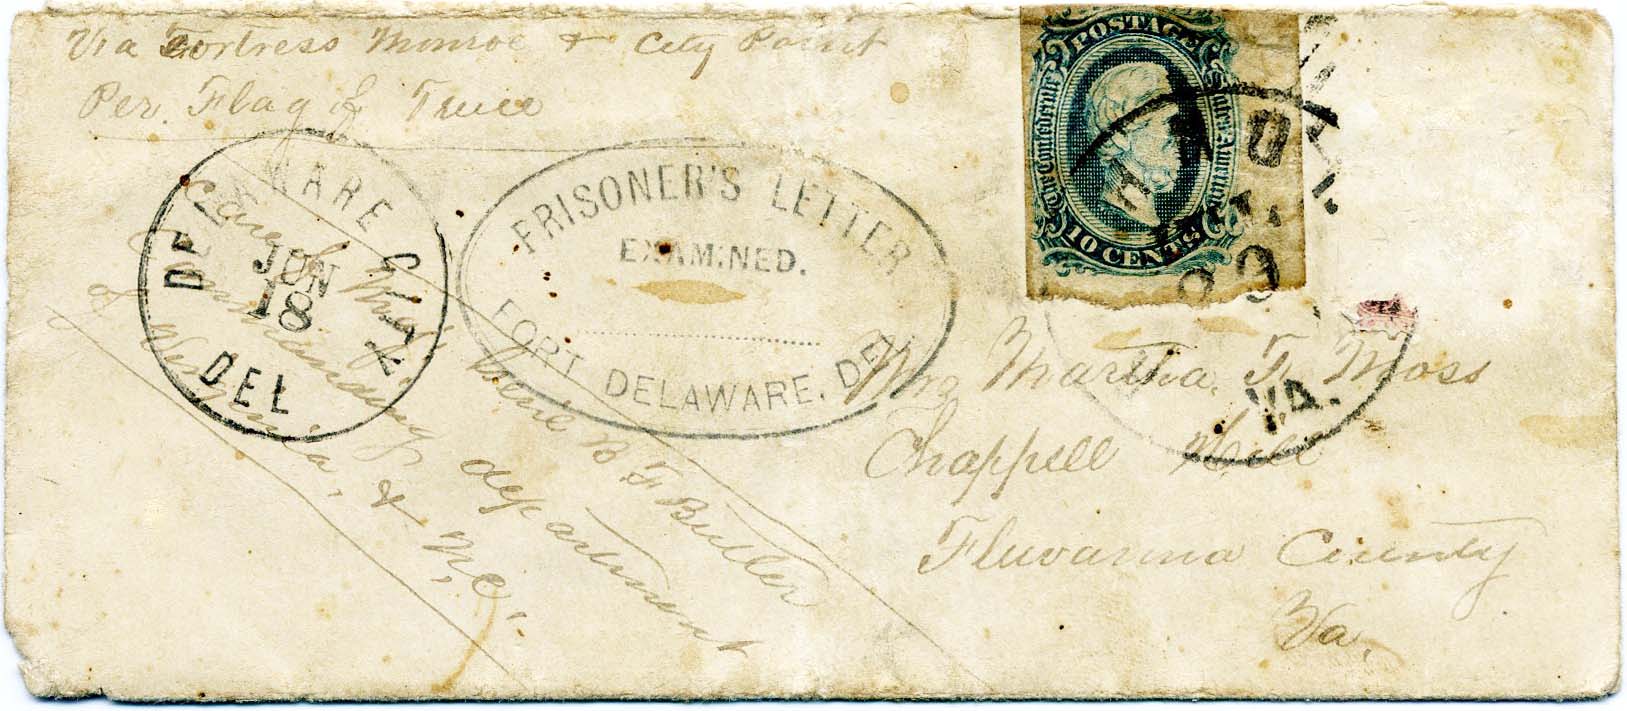 Via Fortress Monroe & City Point
Per. Flag of Truce
DELAWARE CITY
JUN
18
DEL
PRISONER'S LETTER
EXAMINED.
FORT DELAWARE, DEL
POSTAGE
The Confederate States of America
10 CENTS
VA.
Care of Maj. Genl B F Butler
Commanding department
of Virginia, & N.C.
Martha. F. Moss
Chappell Hill
Fluvanna County
Va.